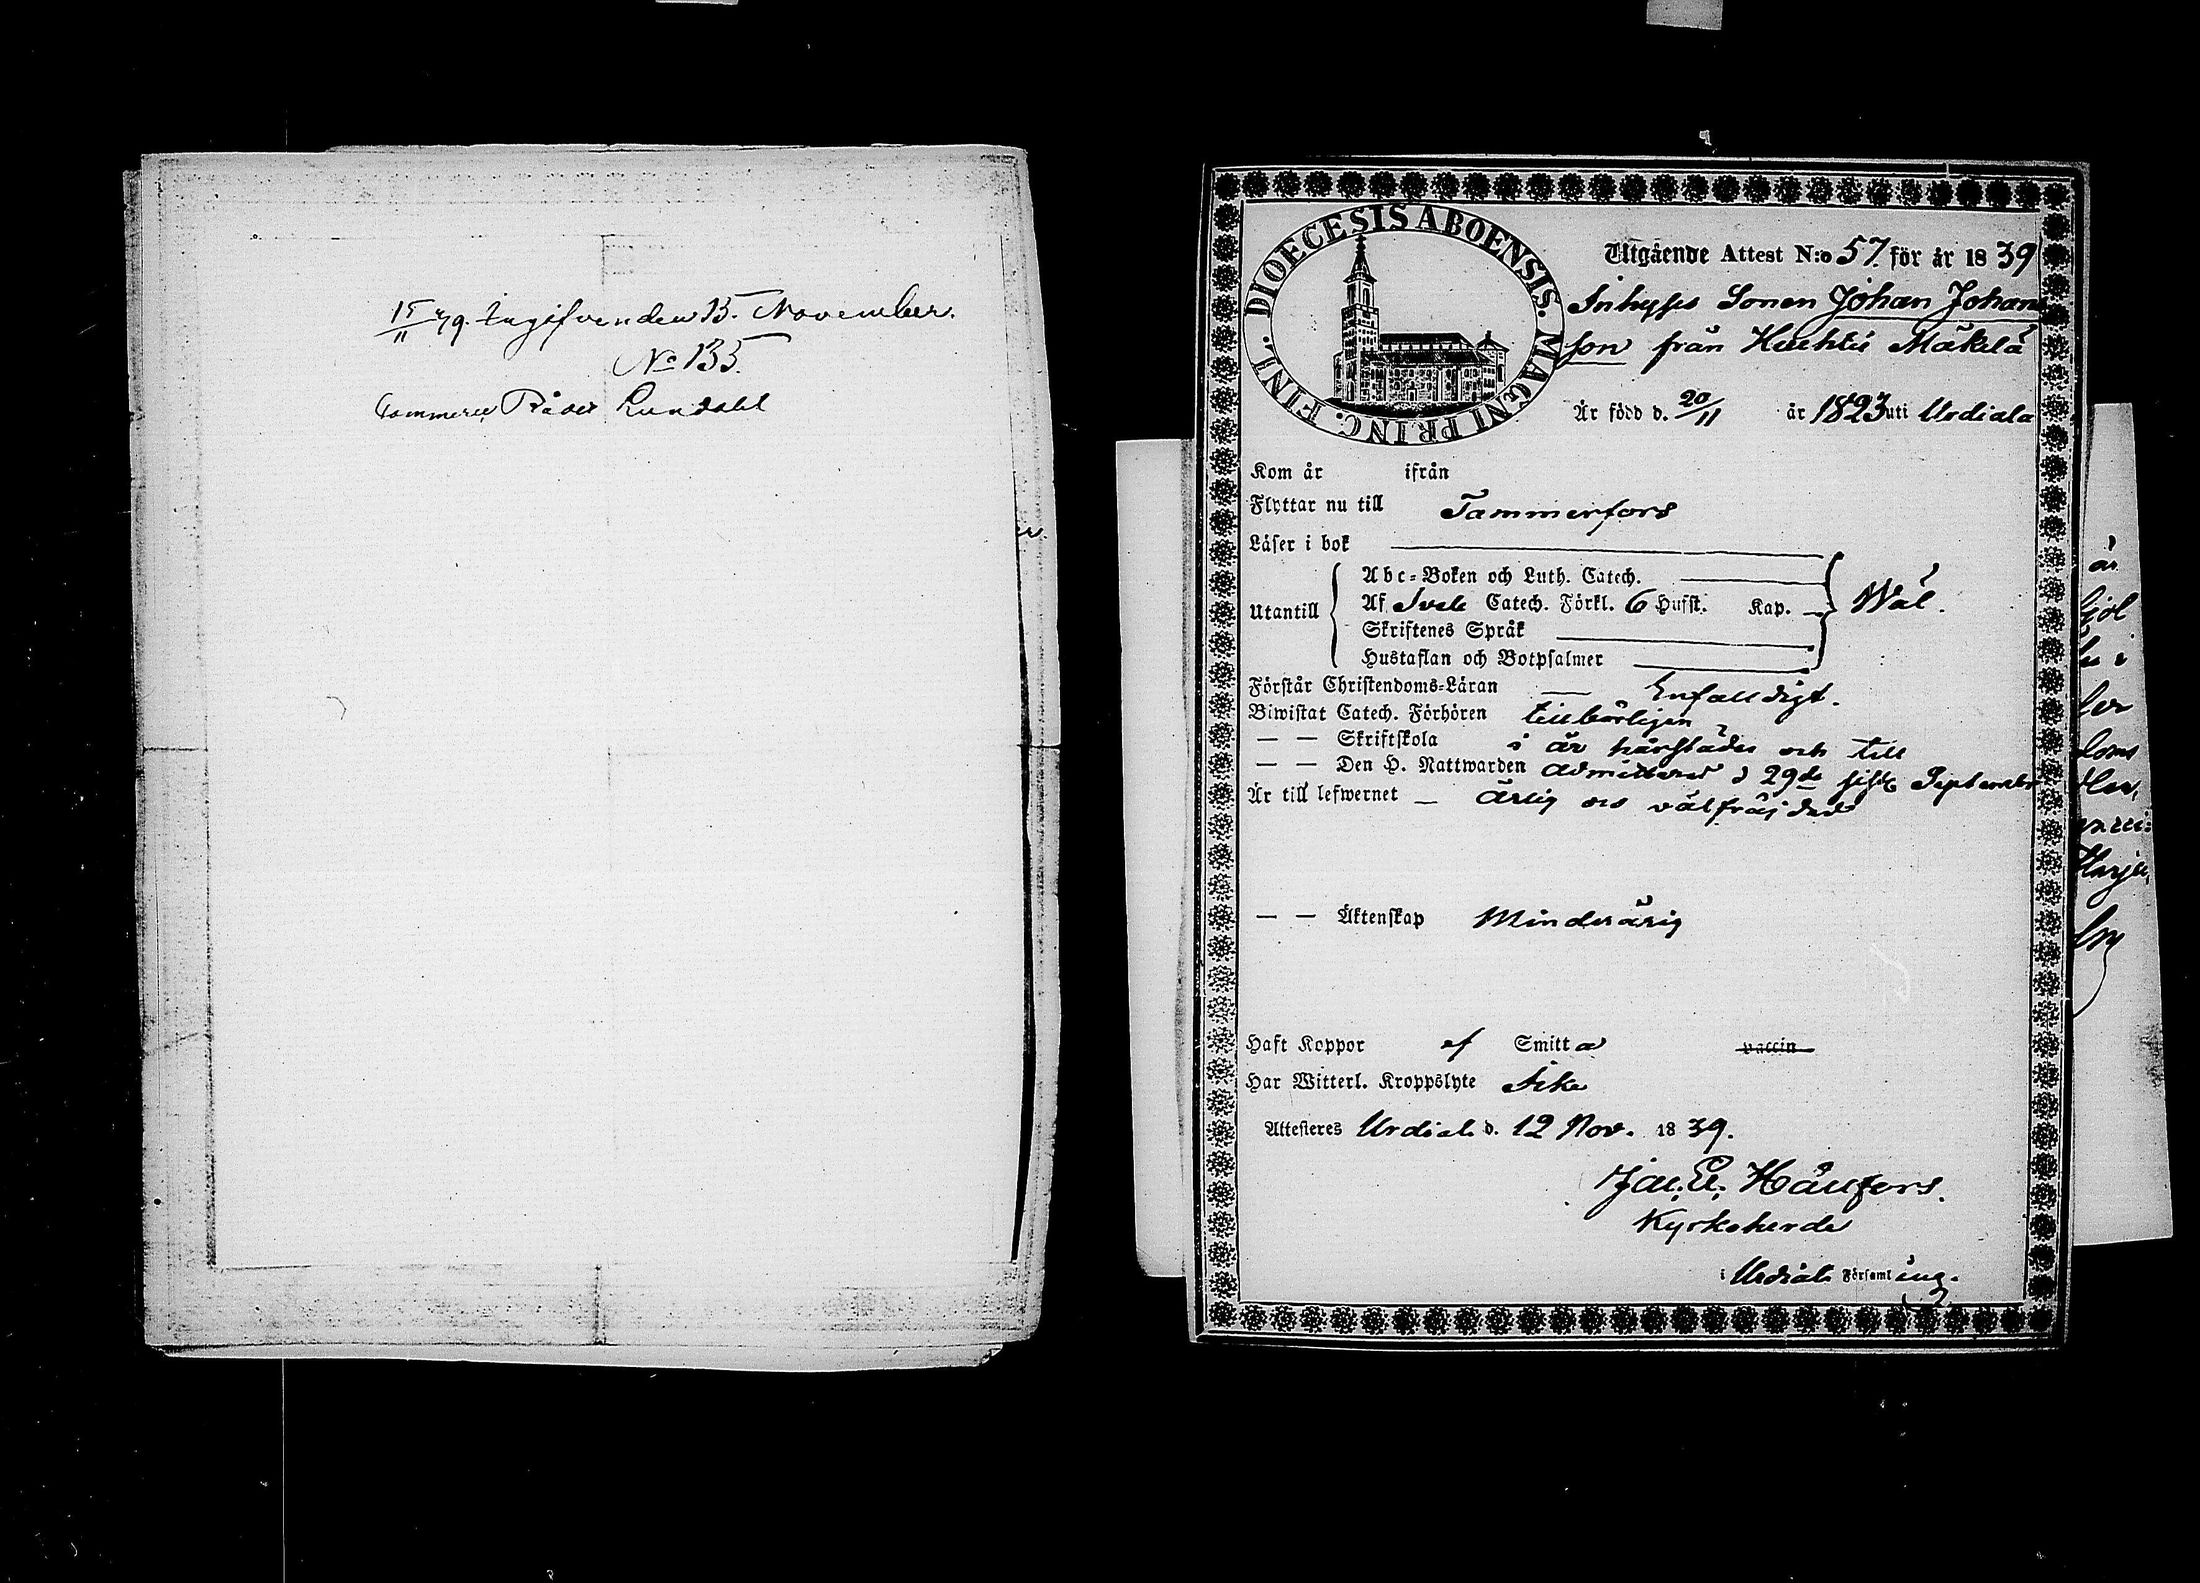 15/11 39. Ingifven den 15. November.
No 135.
Commerce Rådet Lundahl
DIOECESIS ABOENSIS. MAGNI PRINC. FINL.
Utgående Attest N:o 57. för år 1839
Inhyses Sonen Johan Johans
son från Huhtis Mäkelä
Är född d. 20/11 år 1823 uti Urdiala
Kom år ifrån
Flyttar nu till Tammerfors
Läser i bok
Utantill
Abc-Boken och Luth. Catech.
Af Svebe Catech. Förkl. 6 Hufst. Kap. Wäl.
Skriftenes Språk
Hustaflan och Botpsalmer
Förstår Christendoms-Läran — Enfalldigt.
Biwistat Catech. Förhören tillbörligen
— — Skriftskola i år härstädes och till
— — Den H. Nattwarden admitterad d 29de sistl September
Är till lefwernet — Ärlig och välfräjdad
— — Äktenskap Minderårig
Haft Koppor af Smitta vaccin
Har Witterl. Kroppslyte Icke
Attesteres Urdiala d. 12 Nov. 1839.
Jac. E. Hällfors.
Kyrkoherde
i Urdiala Församling.